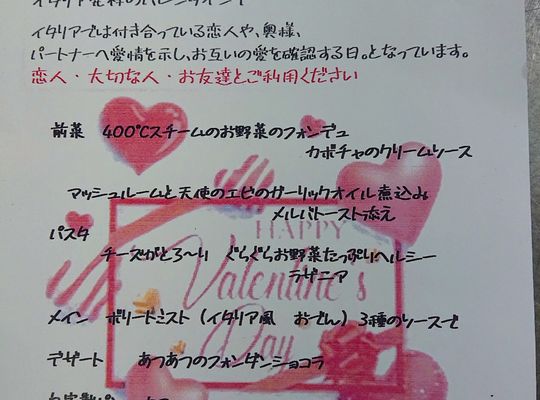 イタリア発祥のバレンタイン！
イタリアでは付き合っている恋人や、奥様、
パートナーへ愛情を示し、お互いの愛を確認する日。となっています。
恋人・大切な人・お友達とご利用ください
前菜 400℃スチームのお野菜のフォンデュ
カボチャのクリームソース
マッシュルームと天使のエビのガーリックオイル煮込み
メルバトースト添え
HAPPY
パスタ
チーズがとろ～り ぐらぐらお野菜たっぷりヘルシー
Valentine's
ラザニア
メイン ボリートミスト（イタリア風 おでん）3種のソースで
Day
デザート あつあつのフォンダンショコラ